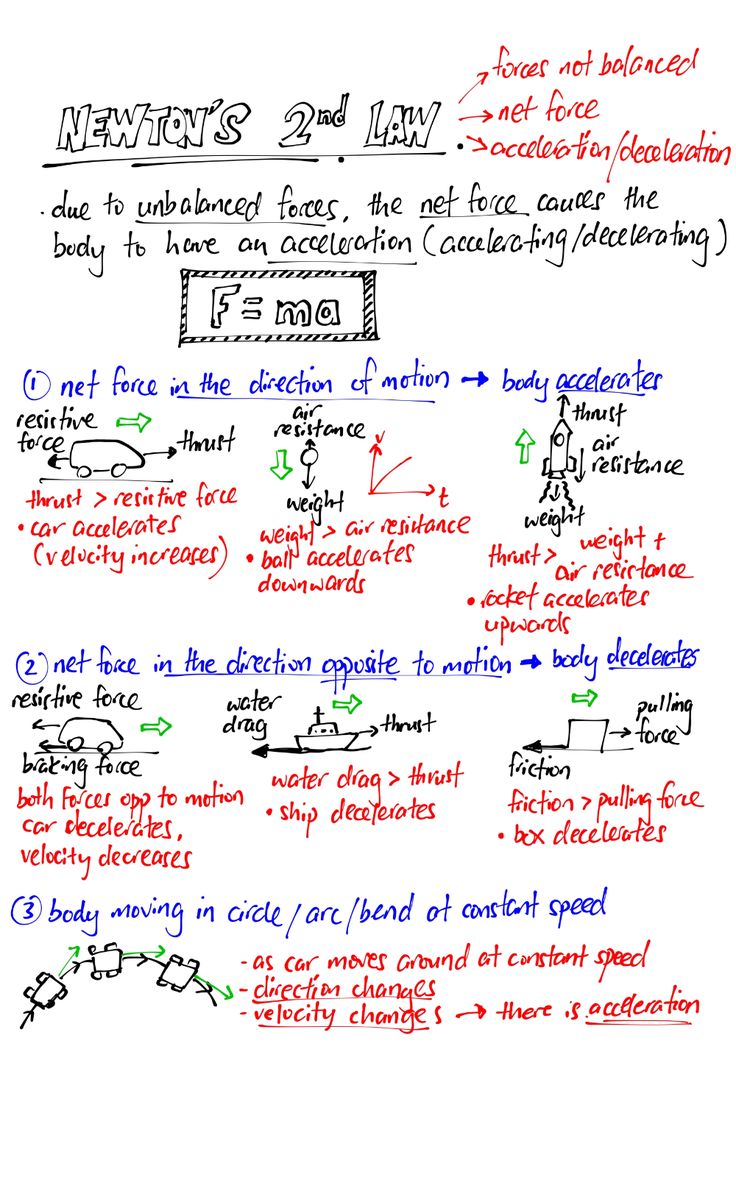 → forces not balanced
NEWTON'S 2nd LAW → net force
→ acceleration/deceleration
· due to unbalanced forces, the net force causes the
body to have an acceleration (accelerating/decelerating)
F = ma
① net force in the direction of motion → body accelerates
resistive
force
thrust
thrust > resistive force
• car accelerates
(velocity increases)
air
resistance
weight
v
t
weight > air resistance
• ball accelerates
downwards
thrust
air
resistance
weight
thrust > weight +
air resistance
• rocket accelerates
upwards
② net force in the direction opposite to motion → body decelerates
resistive force
braking force
both forces opp to motion
car decelerates,
velocity decreases
water
drag
thrust
water drag > thrust
• ship decelerates
pulling
force
friction
friction > pulling force
• box decelerates
③ body moving in circle/arc/bend at constant speed
- as car moves around at constant speed
- direction changes
- velocity changes → there is acceleration